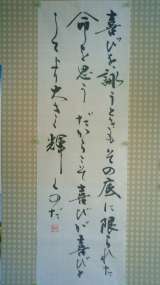 喜びを詠うときもその底に限られた
命を思う だからこそ喜びが喜びと
してより大きく輝くのだ